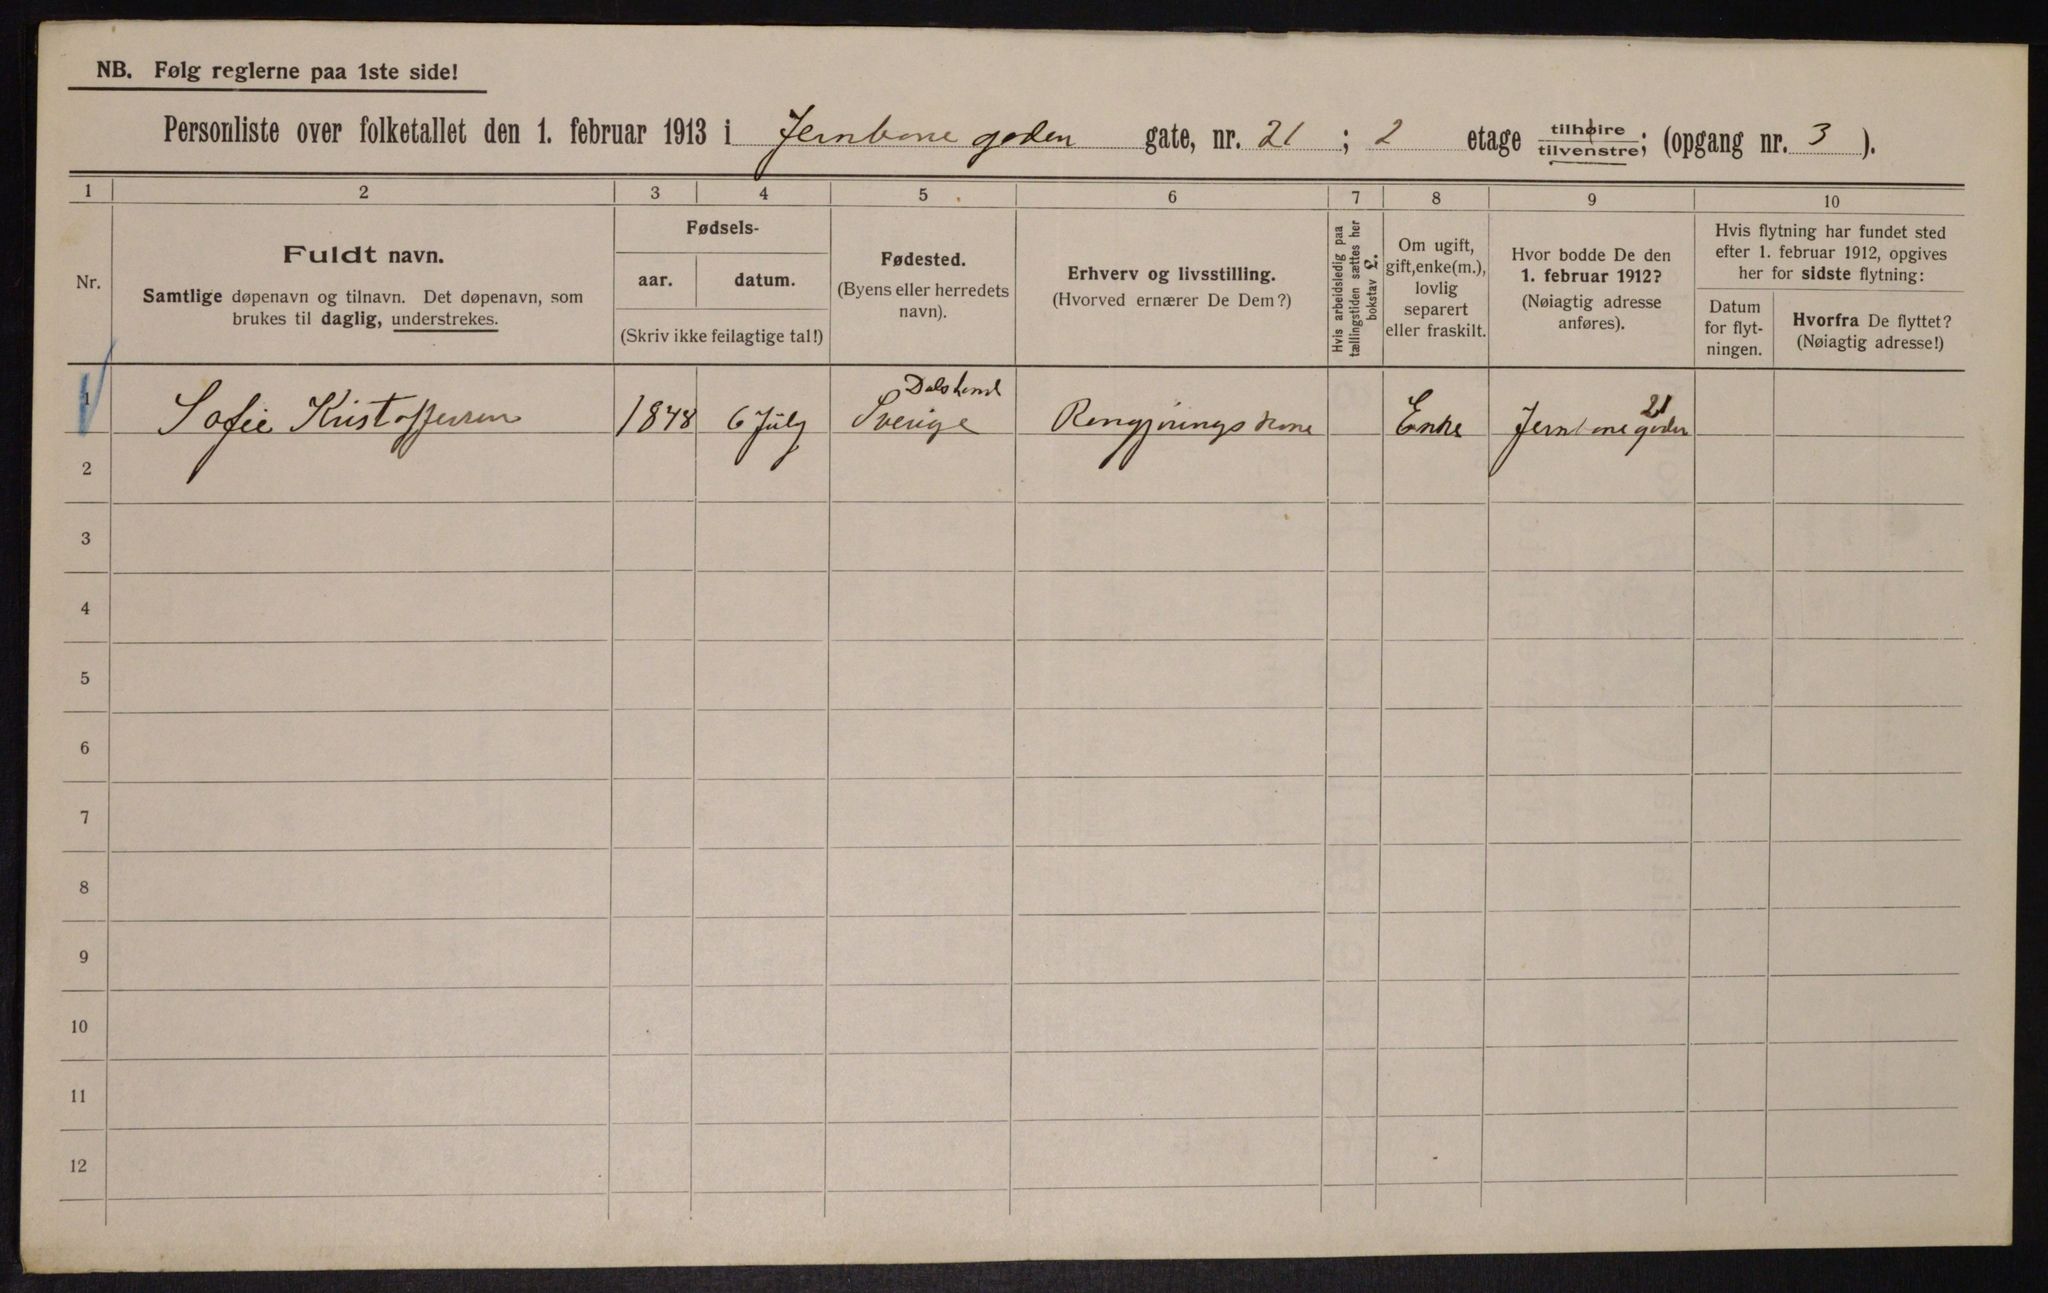 NB. Følg reglerne paa 1ste side!
Personliste over folketallet den 1. februar 1913 i Jernbone goden gate, nr. 21 ; 2 etage tilhøire tilvenstre; (opgang nr. 3 ).
1 2 3 4 5 6 7 8 9 10
Nr.
Fuldt navn.
Samtlige døpenavn og tilnavn. Det døpenavn, som
brukes til daglig, understrekes.
Fødsels-
aar. datum.
(Skriv ikke feilagtige tal!)
Fødested.
(Byens eller herredets
navn).
Erhverv og livsstilling.
(Hvorved ernærer De Dem?)
Hvis arbeidsledig paa
tællingstiden sættes her
bokstav L.
Om ugift,
gift, enke(m.),
lovlig
separert
eller fraskilt.
Hvor bodde De den
1. februar 1912?
(Nøiagtig adresse
anføres).
Hvis flytning har fundet sted
efter 1. februar 1912, opgives
her for sidste flytning:
Datum
for flyt-
ningen.
Hvorfra De flyttet?
(Nøiagtig adresse!)
Dalsland 21
1 Sofie Kristoffersen 1848 6 July Sverige Rengjøringskone Enke Jernbonegoden
2
3
4
5
6
7
8
9
10
11
12